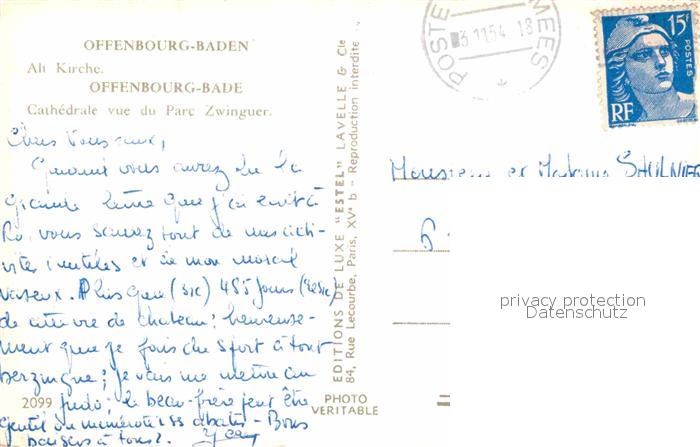 OFFENBOURG-BADEN
Alt Kirche.
OFFENBOURG-BADE
Cathédrale vue du Parc Zwinguer.
Chers Vous aux,
Quand vous aurez lu la
grande lettre que j'ai écrit à
Ro, vous saurez tout de mes acti-
vités inutiles et de mon moral
vaseux. Plus que (sic) 485 jours (resic)
de cette vie de chateau; heureuse-
ment que je fais du sport à tout
berzingue; je vais me mettre au
judo; le beau-frère peut être
gentil ou numéroter ses abatis - Bons
baisers à tous 2.
2099
PHOTO
VERITABLE
EDITIONS DE LUXE "ESTEL" LAVELLE & Cie
84, Rue Lecourbe, Paris, XVe b - Reproduction interdite
POSTE MEES
3 11 54 18
15F
POSTES
RF
Monsieur et Madame SAULNIER
6
privacy protection
Datenschutz